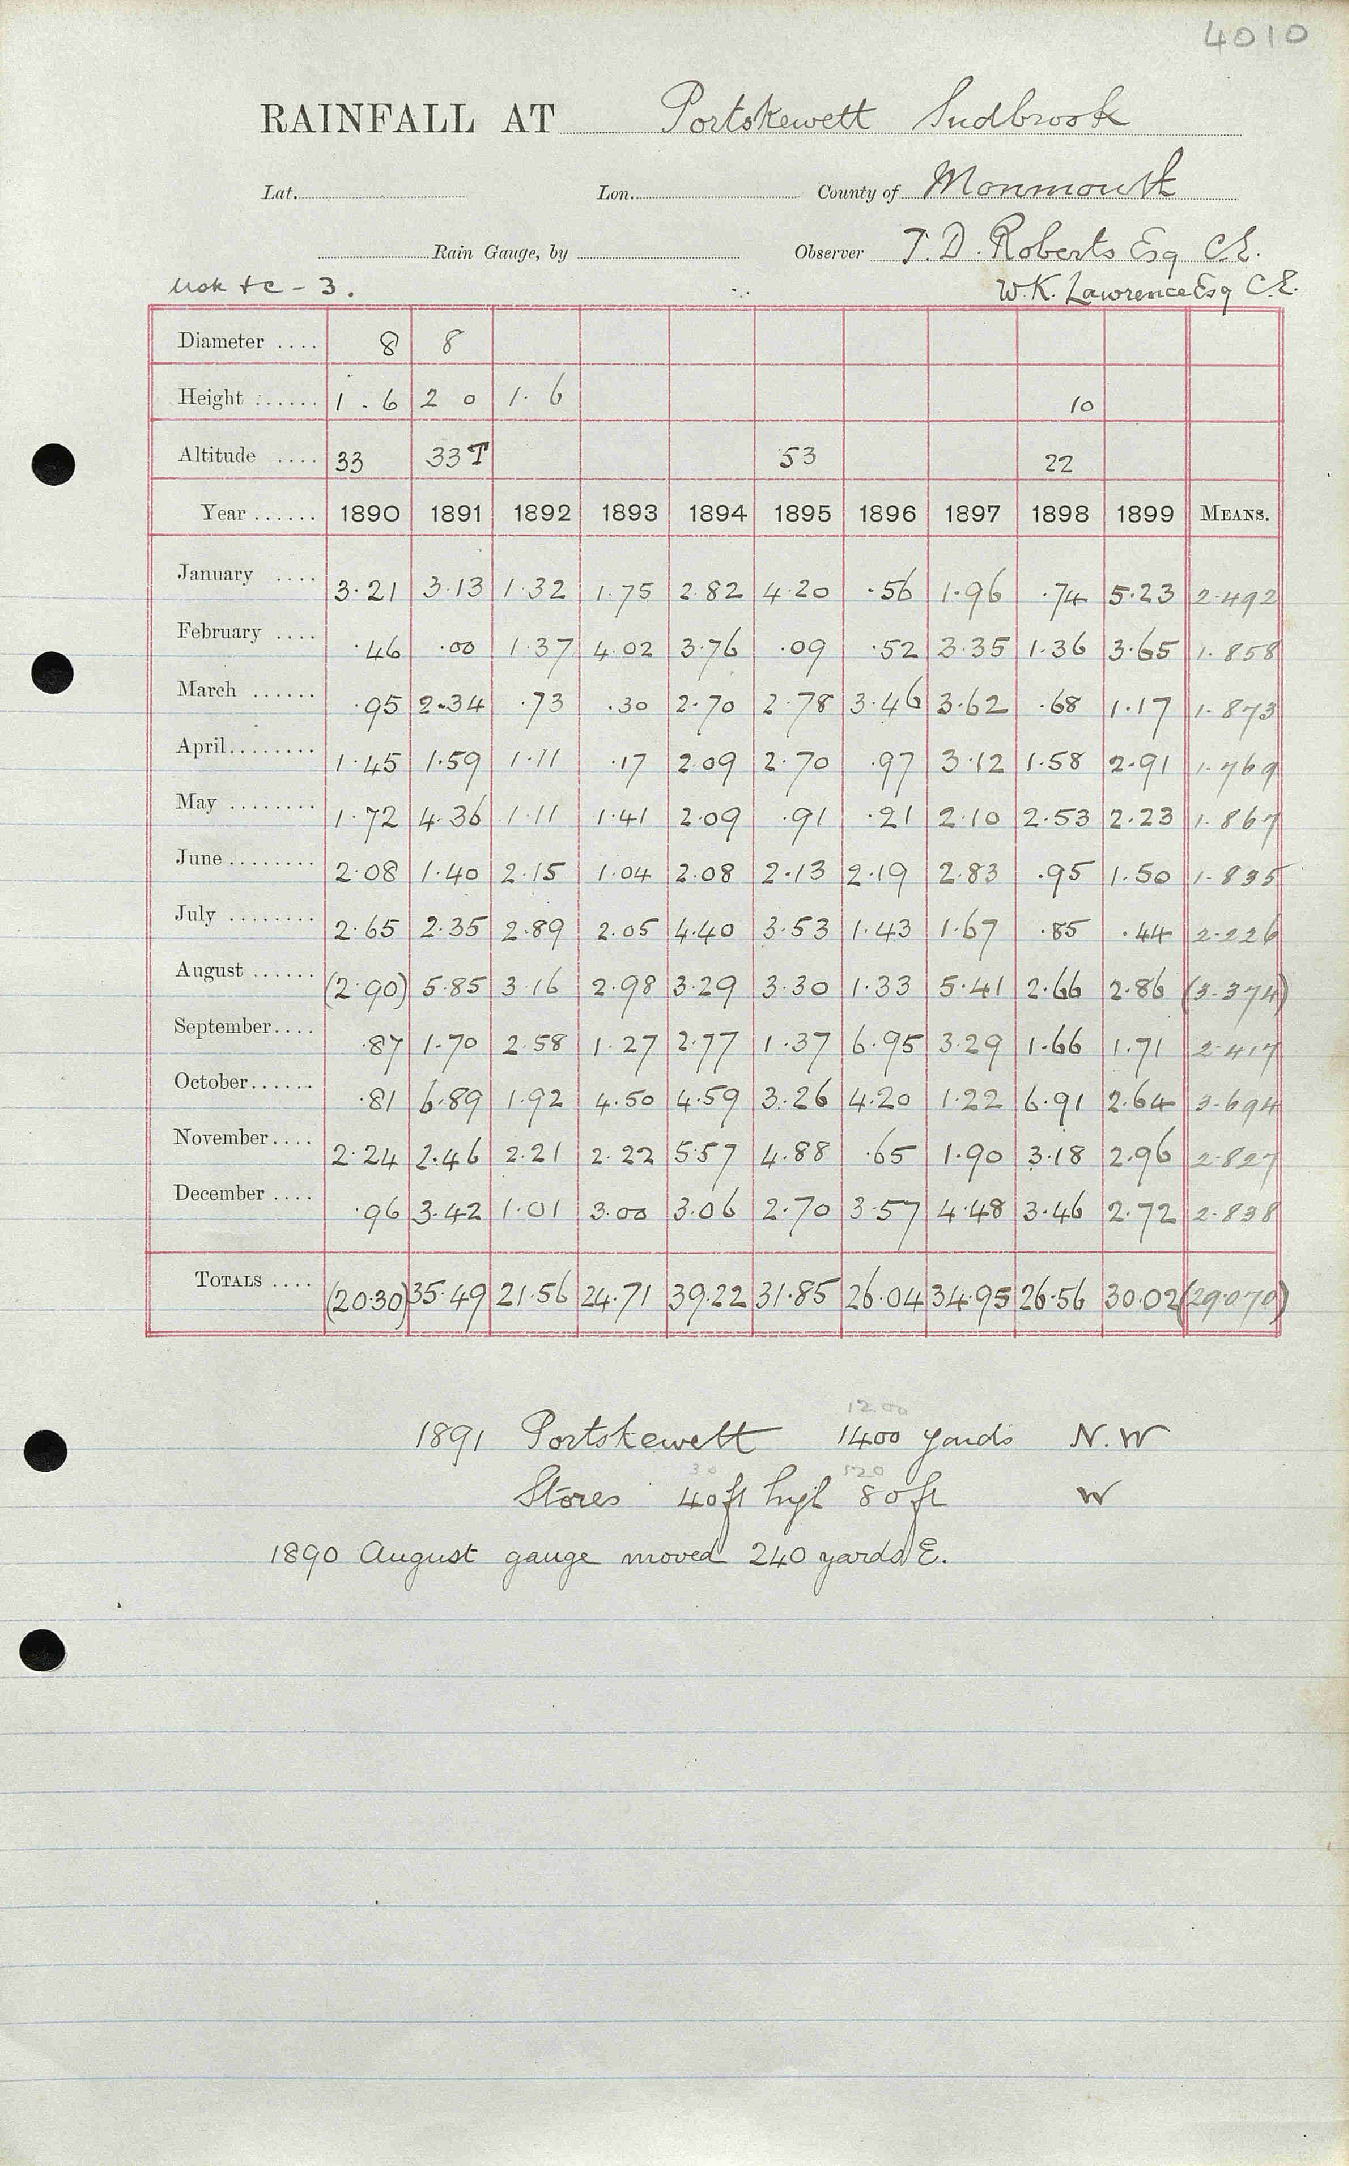 4010
RAINFALL AT Portskewett Sudbrook
Lat. Lon. County of Monmouth
Rain Gauge, by Observer T. D. Roberts Esq C.E.
W.K. Lawrence Esq C.E.
Diameter .... 8 8
Height ...... 1.6 2 0 1.6 10
Altitude .... 33 33T 53 22
Year ...... 1890 1891 1892 1893 1894 1895 1896 1897 1898 1899 MEANS.
January .... 3.21 3.13 1.32 1.75 2.82 4.20 .56 1.96 .74 5.23 2.492
February .... .46 .00 1.37 4.02 3.76 .09 .52 3.35 1.36 3.65 1.858
March ...... .95 2.34 .73 .30 2.70 2.78 3.46 3.62 .68 1.17 1.873
April........ 1.45 1.59 1.11 .17 2.09 2.70 .97 3.12 1.58 2.91 1.769
May ........ 1.72 4.36 1.11 1.41 2.09 .91 .21 2.10 2.53 2.23 1.867
June ........ 2.08 1.40 2.15 1.04 2.08 2.13 2.19 2.83 .95 1.50 1.835
July ........ 2.65 2.35 2.89 2.05 4.40 3.53 1.43 1.67 .85 .44 2.226
August ...... (2.90) 5.85 3.16 2.98 3.29 3.30 1.33 5.41 2.66 2.86 (3.374)
September.... .87 1.70 2.58 1.27 2.77 1.37 6.95 3.29 1.66 1.71 2.417
October...... .81 6.89 1.92 4.50 4.59 3.26 4.20 1.22 6.91 2.64 3.694
November.... 2.24 2.46 2.21 2.22 5.57 4.88 .65 1.90 3.18 2.96 2.827
December .... .96 3.42 1.01 3.00 3.06 2.70 3.57 4.48 3.46 2.72 2.838
TOTALS .... (20.30) 35.49 21.56 24.71 39.22 31.85 26.04 34.95 26.56 30.02 (29.070)
1200
1891 Portskewett 1400 yards N.W
30 120
Stores 40ft high 80ft W
1890 August gauge moved 240 yards E.